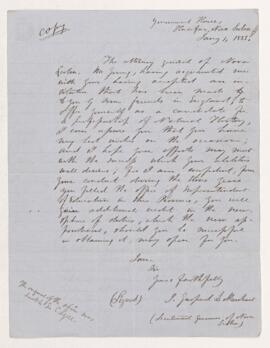 copy
Government House,
Halifax, Nova Scotia
Jany 1, 1855
The attorney general of Nova
Scotia, Mr Young, having acquainted me
with your having accepted an in-
vitation that has been made to
you by friends in England, to
offer yourself as a candidate
for professorship of Natural History,
I can assure you that you have
my best wishes on the occasion;
and I hope your efforts may meet
with the success which your abilities
well deserve; for I am confident, from
your conduct during the three years
you filled the office of Superintendent
of Education in this Province, you will
gain additional credit in the new
sphere of duties, which the new ap-
pointment, should you be successful
in obtaining it, may open for you.
I am
Sir
Yours faithfully
(Signed) J. Gaspard Le Marchant
(Lieutenant Governor of Nova
Scotia)
The original of the above was